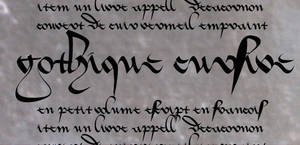 item un livre appell Decameron
couvert de cuir vermeil empraint
gothique cursive
en petit volume escript en francois
item un livre appell Decameron
couvert de cuir vermeil empraint